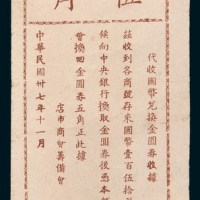 伍角
代收國幣兌換金圓券收據
茲收到各商號存來國幣壹百伍拾
候向中央銀行換取金圓券後憑本
會換回金圓券五角正此據
店市商會籌備會
中華民國卅七年十一月